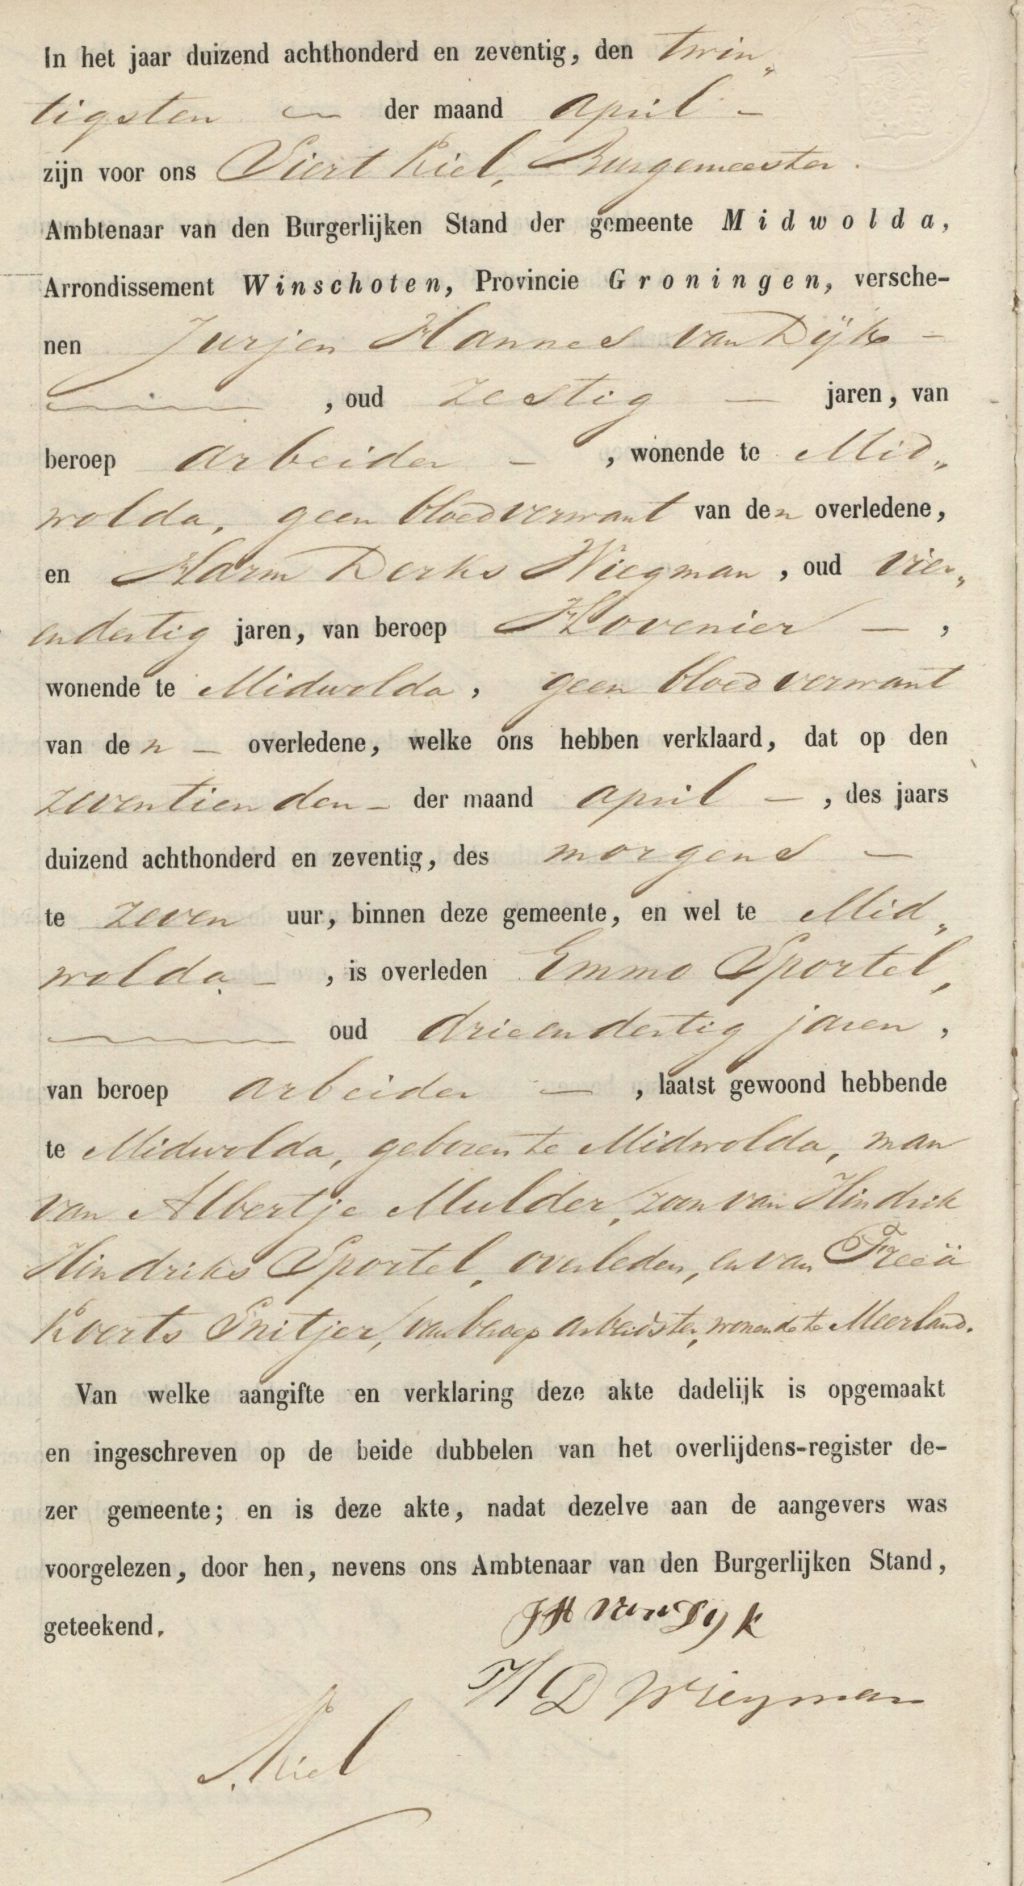 In het jaar duizend achthonderd en zeventig, den twin„
tigsten — der maand april —
zijn voor ons Siert Kiel, Burgemeester.
Ambtenaar van den Burgerlijken Stand der gemeente Midwolda,
Arrondissement Winschoten, Provincie Groningen, versche-
nen Jurjen Hannes van Dijk —
, oud zestig — jaren, van
beroep arbeider — , wonende te Mid„
wolda, geen bloedverwant van den overledene,
en Harm Derks Wiegman, oud vier„
endertig jaren, van beroep Hovenier — ,
wonende te Midwolda, geen bloedverwant
van den — overledene, welke ons hebben verklaard, dat op den
zeventienden — der maand april — , des jaars
duizend achthonderd en zeventig, des morgens —
te zeven uur, binnen deze gemeente, en wel te Mid„
wolda — , is overleden Emmo Sportel,
oud drieendertig jaren,
van beroep arbeider — , laatst gewoond hebbende
te Midwolda, geboren te Midwolda, man
van Albertje Mulder, zoon van Hindrik
Hindriks Sportel, overleden, en van Freeä
Koerts Snitjer, van beroep arbeidster, wonende te Meerland.
Van welke aangifte en verklaring deze akte dadelijk is opgemaakt
en ingeschreven op de beide dubbelen van het overlijdens-register de-
zer gemeente; en is deze akte, nadat dezelve aan de aangevers was
voorgelezen, door hen, nevens ons Ambtenaar van den Burgerlijken Stand,
geteekend.
JH van Dyk
H D Wiegman
S. Kiel